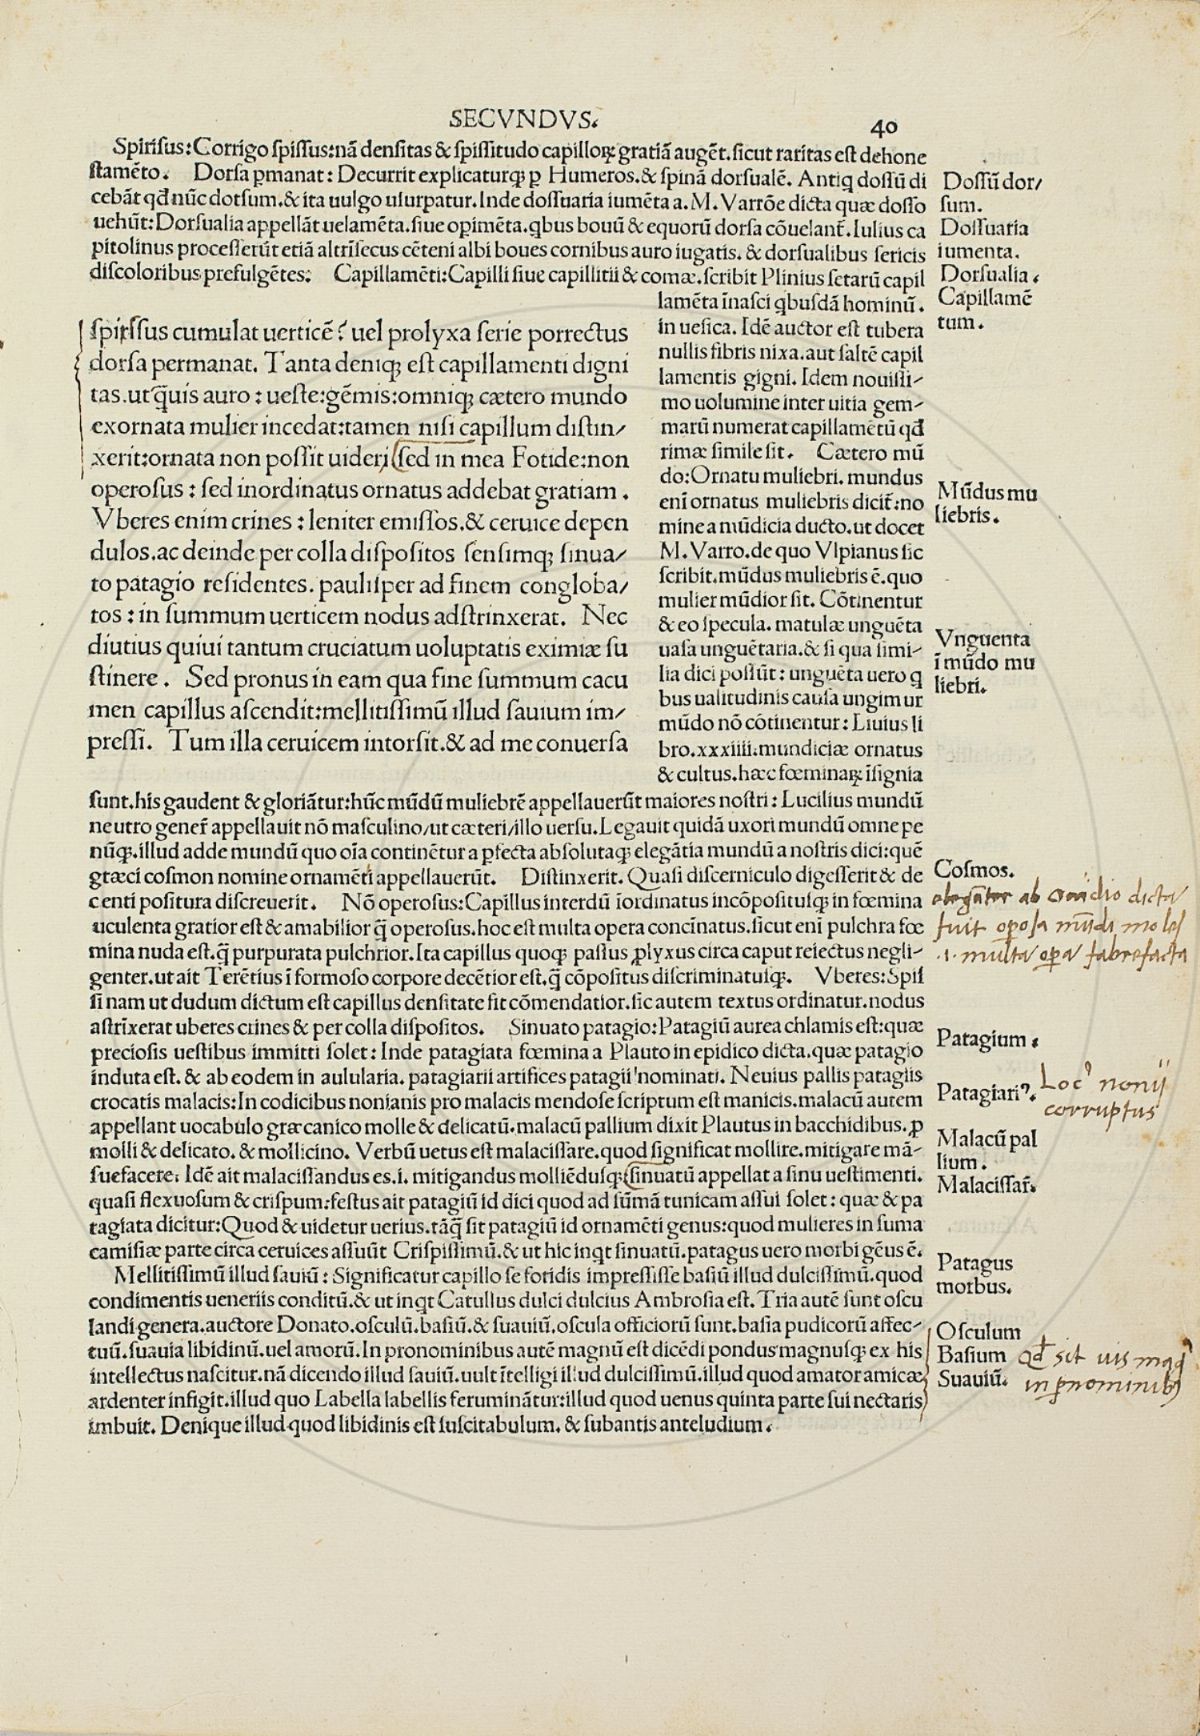 SECVNDVS.
40
Spirisus:Corrigo spissus:nã densitas & spissitudo capilloꝝ gratiã augẽt.sicut raritas est dehone
stamẽto. Dorsa ꝑmanat: Decurrit explicaturqꝫ ꝑ Humeros.& spinã dorsualẽ. Antiq dossũ di
cebãt qđ nũc dotsum.& ita uulgo usurpatur.Inde dossuaria iumẽta a.M.Varrõe dicta quæ dosso
uehũt:Dorsualia appellãt uelamẽta.siue opimẽta.qbus bouũ & equorũ dorsa cõuelant̃.Iulius ca
pitolinus processerũt etiã altrĩsecus cẽteni albi boues cornibus auro iugatis.& dorsualibus sericis
discoloribus prefulgẽtes: Capillamẽti:Capilli siue capillitii & comæ.scribit Plinius setarũ capil
lamẽta ĩnasci qbusdã hominũ.
in uesica. Idẽ auctor est tubera
nullis fibris nixa.aut saltẽ capil
lamentis gigni. Idem nouissi-
mo uolumine inter uitia gem-
marũ numerat capillamẽtũ qđ
rimæ simile sit. Cætero mũ
do:Ornatu muliebri. mundus
enĩ ornatus muliebris dicit̃:no
mine a mũdicia ducto.ut docet
M.Varro.de quo Vlpianus sic
scribit.mũdus muliebris ẽ.quo
mulier mũdior fit. Cõtinentur
& eo specula. matulæ unguẽta
uasa unguẽtaria.& si qua simi-
lia dici possũt: unguẽta uero q
bus ualitudinis causa ungimur
mũdo nõ cõtinentur: Liuius li
bro.xxxiiii.mundiciæ ornatus
& cultus.hæc fœminaꝝ ĩsignia
spirssus cumulat uerticẽ? uel prolyxa serie porrectus
dorsa permanat. Tanta deniqꝫ est capillamenti digni
tas.ut q̃uis auro: ueste:gẽmis:omniqꝫ cætero mundo
exornata mulier incedat:tamen nisi capillum distin/
xerit:ornata non possit uideri sed in mea Fotide:non
operosus: sed inordinatus ornatus addebat gratiam.
Vberes enim crines: leniter emissos.& ceruice depen
dulos.ac deinde per colla dispositos sensimqꝫ sinua/
to patagio residentes. paulisper ad finem congloba/
tos: in summum uerticem nodus adstrinxerat. Nec
diutius quiui tantum cruciatum uoluptatis eximiæ su
stinere. Sed pronus in eam qua fine summum cacu
men capillus ascendit:mellitissimũ illud sauium im/
pressi. Tum illa ceruicem intorsit.& ad me conuersa
sunt.his gaudent & gloriãtur:hũc mũdũ muliebrẽ appellauerũt maiores nostri: Lucilius mundũ
neutro gener̃ appellauit nõ masculino/ut cæteri/illo uersu.Legauit quidã uxori mundũ omne pe
nũqꝫ.illud adde mundũ quo oĩa continẽtur a ꝑfecta absolutaqꝫ elegãtia mundũ a nostris dici:quẽ
gtæci cosmon nomine ornamẽti appellauerũt. Distinxerit. Quasi discerniculo digesserit & de
centi positura discreuerit. Nõ operosus:Capillus interdũ ĩordinatus incõpositusqꝫ in fœmina
uculenta gratior est & amabilior q̃ operosus.hoc est multa opera concĩnatus.sicut enĩ pulchra fœ
mina nuda est.q̃ purpurata pulchrior. Ita capillus quoqꝫ passus ꝓlyxus circa caput reiectus negli-
genter.ut ait Terẽtius ĩ formoso corpore decẽtior est.q̃ cõpositus discriminatusqꝫ. Vberes:Spis
si nam ut dudum dictum est capillus densitate fit cõmendatior.sic autem textus ordinatur.nodus
astrĩxerat uberes crines & per colla dispositos. Sinuato patagio:Patagiũ aurea chlamis est:quæ
preciosis uestibus immitti solet: Inde patagiata fœmina a Plauto in epidico dicta.quæ patagio
induta est.& ab eodem in aulularia.patagiarii artifices patagii nominati. Neuius pallis patagiis
crocatis malacis:In codicibus nonianis pro malacis mendose scriptum est manicis.malacũ autem
appellant uocabulo græcanico molle & delicatũ.malacũ pallium dixit Plautus in bacchidibus.ꝓ
molli & delicato.& mollicino. Verbũ uetus est malacissare.quod significat mollire.mitigare mã-
suefacere: Idẽ ait malacissandus es.i.mitigandus molliẽdusqꝫ sinuatũ appellat a sinu uestimenti.
quasi flexuosum & crispum:festus ait patagiũ id dici quod ad sũmã tunicam assui solet: quæ & pa
tagiata dicitur:Quod & uidetur uerius.tãq̃ sit patagiũ id ornamẽti genus:quod mulieres in suma
camisiæ parte circa ceruices assuũt Crispissimũ.& ut hic inqt sinuatũ.patagus uero morbi gẽus ẽ.
Mellitissimũ illud sauiũ: Significatur capillo se fotidis impressisse basiũ illud dulcissimũ.quod
condimentis ueneriis conditũ.& ut inqt Catullus dulci dulcius Ambrosia est. Tria autẽ sunt oscu
landi genera.auctore Donato.osculũ.basiũ.& suauiũ.oscula officiorũ sunt.basia pudicorũ affec-
tuũ.suauia libidinũ.uel amorũ.In pronominibus autẽ magnũ est dicẽdi pondus magnusqꝫ ex his
intellectus nascitur.nã dicendo illud sauiũ.uult ĩtelligi illud dulcissimũ.illud quod amator amicæ
ardenter infigit.illud quo Labella labellis feruminãtur:illud quod uenus quinta parte sui nectaris
imbuit. Denique illud quod libidinis est suscitabulum.& subantis anteludium.
Dossũ dor/
sum.
Dossuaria
iumenta.
Dorsualia.
Capillamẽ
tum.
Mũdus mu
liebris.
Vnguenta
ĩ mũdo mu
liebri.
Cosmos.
elegãter ab ovidio dicta
fuit operosa mũdi moles
.i. multa opera fabrefacta
Patagium.
Patagiariꝰ.
Locꝰ nonij
corruptus
Malacũ pal
lium.
Malacissar̃.
Patagus
morbus.
Osculum
Basium
Suauiũ.
Qđ sit uis magꝰ
in ꝓnominibꝰ